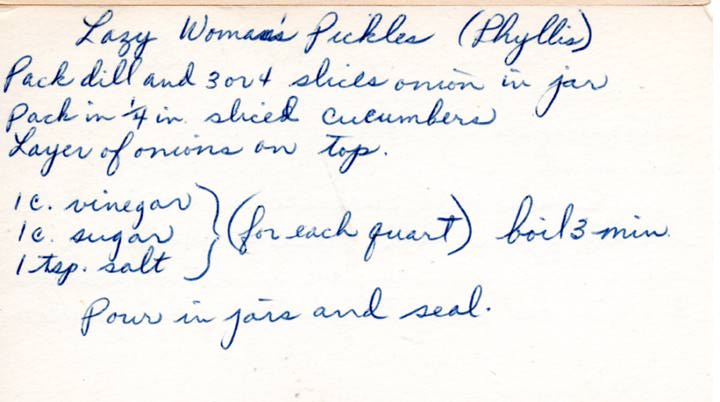 Lazy Woman's Pickles (Phyllis)
Pack dill and 3 or 4 slices onion in jar
Pack in 1/4 in. sliced cucumbers
Layer of onions on top.
1 c. vinegar
1 c. sugar } (for each quart) boil 3 min.
1 tsp. salt
Pour in jars and seal.